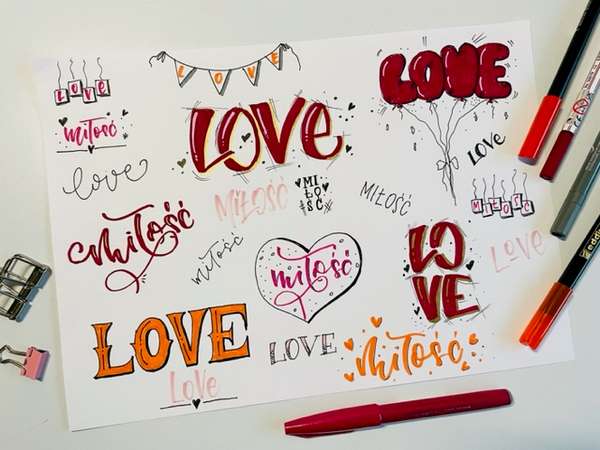 LOVE
LOVE
LOVE
miłość
LOVE
LOVE
love
MIŁOŚĆ
MI
ŁO
ŚĆ
MIŁOŚĆ
MIŁOŚĆ
miłość
miłość
miłość
LO
VE
LOVE
LOVE
LOVE
miłość
LOVE
edding